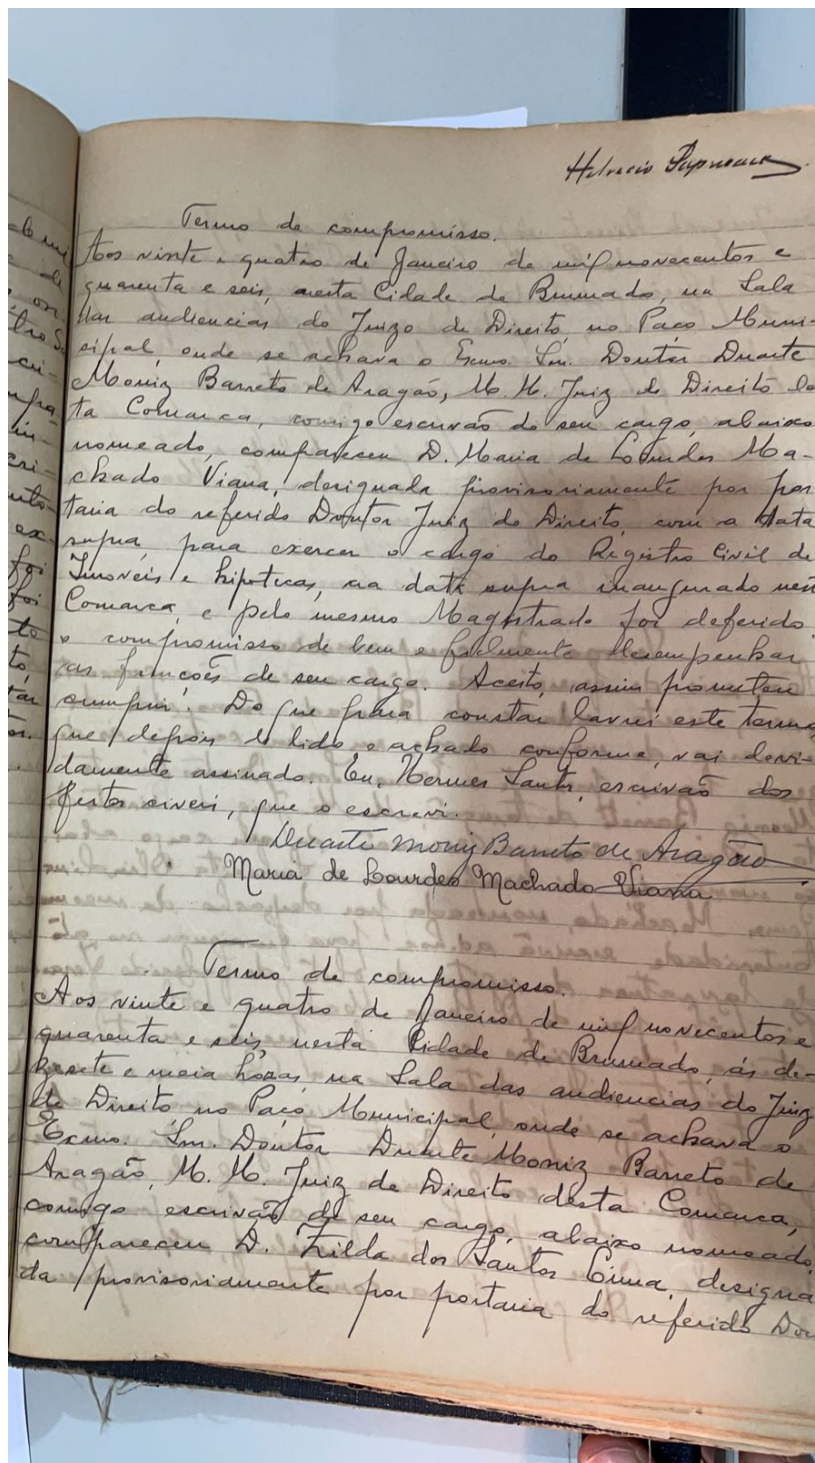 Termo de compromisso.
Aos vinte e quatro de Janeiro de mil novecentos e
quarenta e seis, nesta Cidade de Brumado, na Sala
das audiencias do Juizo de Direito, no Paço Muni-
cipal, onde se achava o Exmo. Snr. Doutor Duarte
Moniz Barreto de Aragão, M. M. Juiz de Direito des
ta Comarca, comigo escrivão do seu cargo, abaixo
nomeado, compareceu D. Maria de Lourdes Ma-
chado Viana, designada provisoriamente por por
taria do referido Doutor Juiz de Direito, com a data
supra, para exercer o cargo do Registro Civil de
Imoveis e hipotecas, na data supra inaugurado nest
Comarca, e pelo mesmo Magistrado foi deferido
o compromisso de bem e fielmente desempenhar
as funcões de seu cargo. Aceito, assim prometeu
cumprir. Do que para constar lavrei este termo,
que depois de lido e achado conforme, vai devi-
damente assinado. Eu, Hermes Santos, escrivão dos
feitos civeis, que o escrevi.
Duarte Moniz Barreto de Aragão
Maria de Lourdes Machado Viana
Termo de compromisso.
Aos vinte e quatro de Janeiro de mil novecentos e
quarenta e seis, nesta Cidade de Brumado, ás de-
zesete e meia horas, na Sala das audiencias do Juiz
de Direito, no Paço Municipal, onde se achava o
Exmo. Snr. Doutor Duarte Moniz Barreto de
Aragão, M. M. Juiz de Direito desta Comarca,
comigo escrivão de seu cargo, abaixo nomeado,
compareceu D. dos Santos designa
da provisoriamente por portaria do referido Dou